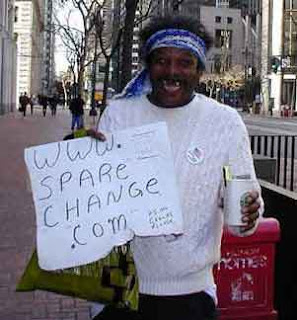 www.
SPARE
CHANGE
.COM
homes